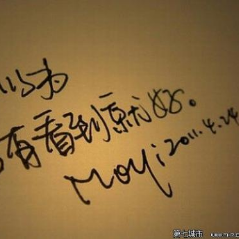 以为
没有看到就好。
Moyi 2011.4.24
第七城市